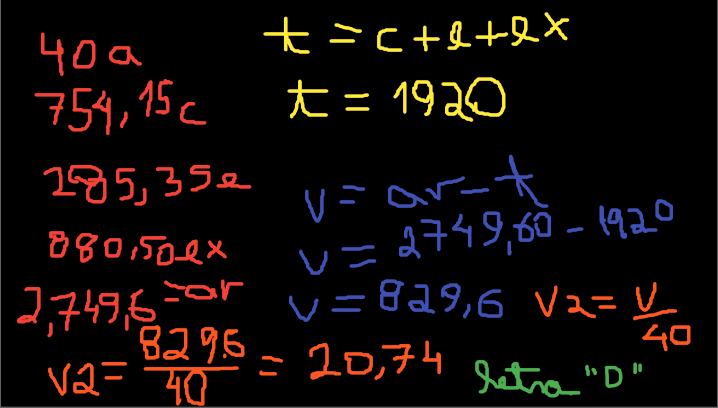 40a
754,15c
285,35e
880,50ex
2,749,6=ar
t=c+e+ex
t=1920
v=ar-t
v=2749,60-1920
v=829,6
v2=v/40
v2=829,6/40=20,74
letra "D"